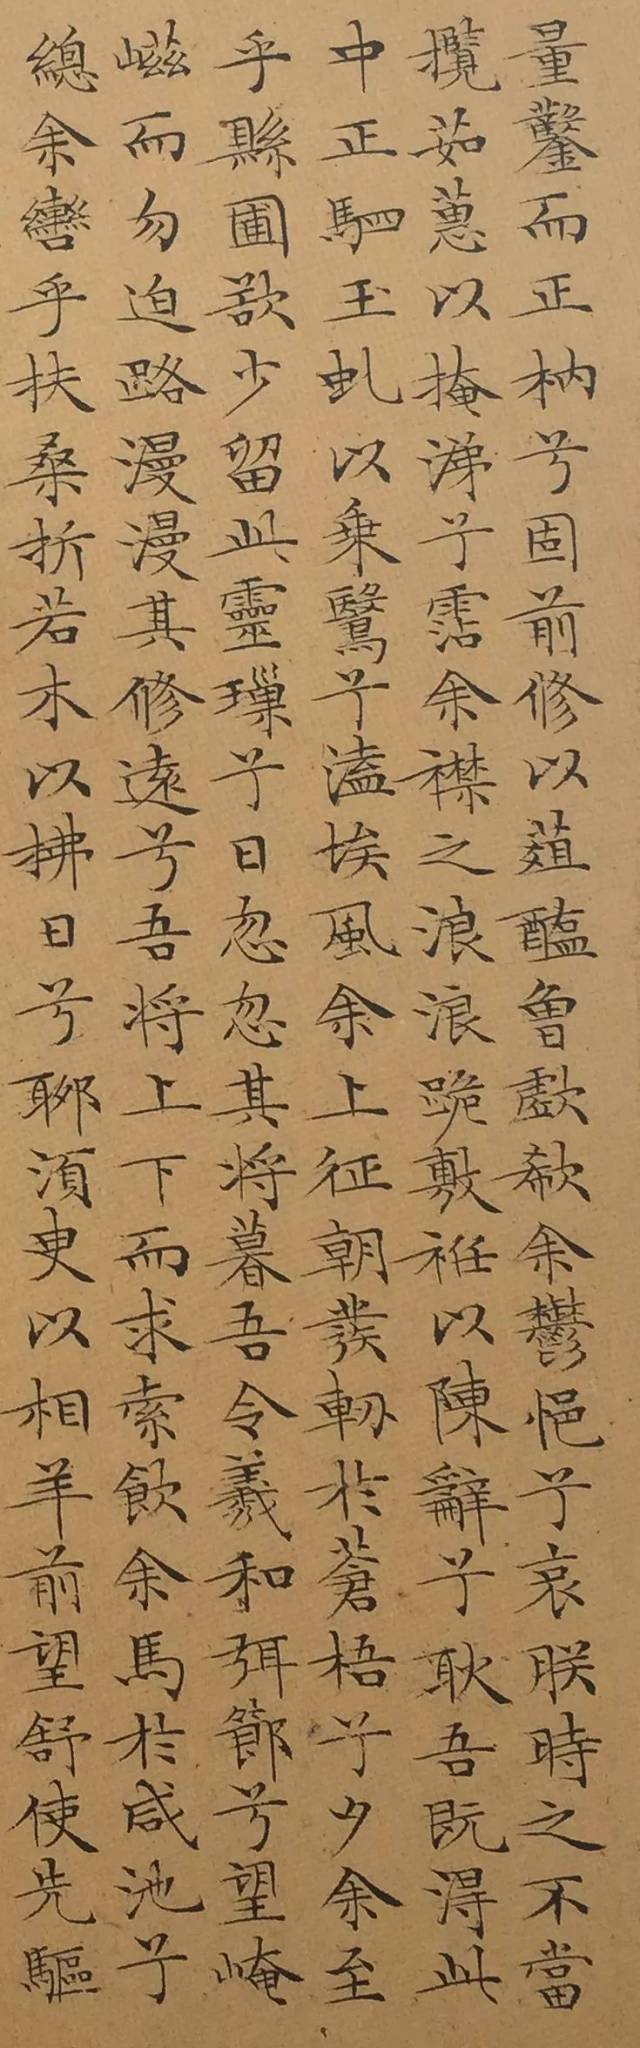 量鑿而正枘兮固前修以葅醢曾歔欷余鬱悒兮哀朕時之不當
攬茹蕙以掩涕兮霑余襟之浪浪跪敷袵以陳辭兮耿吾既得此
中正駟玉虬以乗鷖兮溘埃風余上征朝發軔於蒼梧兮夕余至
乎縣圃欲少留此靈璅兮日忽忽其将暮吾令羲和弭節兮望崦
嵫而勿迫路漫漫其修遠兮吾将上下而求索飲余馬於咸池兮
總余轡乎扶桑折若木以拂日兮聊須臾以相羊前望舒使先驅